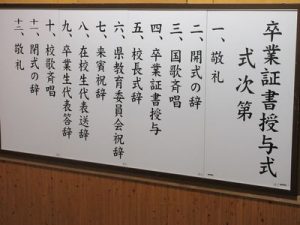 卒業証書授与式
式次第
一、敬礼
二、開式の辞
三、国歌斉唱
四、卒業証書授与
五、校長式辞
六、県教育委員会祝辞
七、来賓祝辞
八、在校生代表送辞
九、卒業生代表答辞
十、校歌斉唱
十一、閉式の辞
十二、敬礼